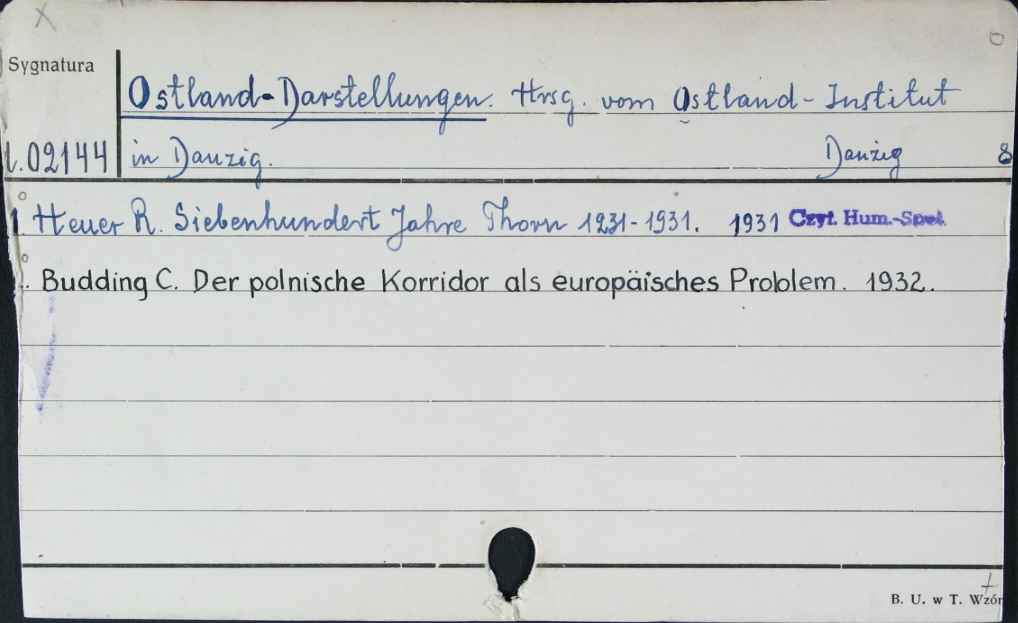 X
Sygnatura
Ostland-Darstellungen. Hrsg. vom Ostland-Institut
02144 in Danzig. Danzig 8
1 Heuer R. Siebenhundert Jahre Thorn 1231-1931. 1931 Czyt. Hum.-Społ.
Budding C. Der polnische Korridor als europäisches Problem. 1932.
B. U. w T. Wzór